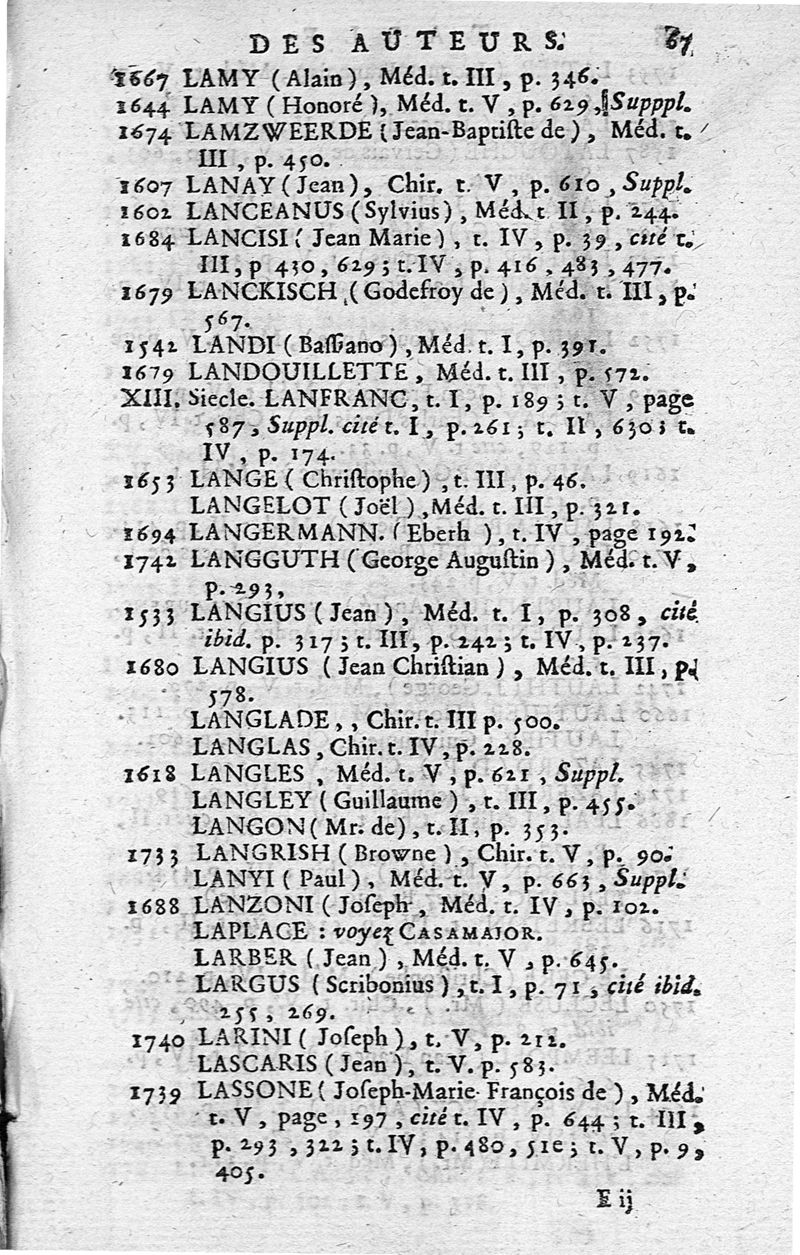 DES AUTEURS. 67
1667 LAMY (Alain), Méd. t. III, p. 346.
1644 LAMY (Honoré), Méd. t. V, p. 629, Supppl.
1674 LAMZWEERDE (Jean-Baptiſte de), Méd. t.
III, p. 450.
1607 LANAY (Jean), Chir. t. V, p. 610, Suppl.
1602 LANCEANUS (Sylvius), Méd. t II, p. 244.
1684 LANCISI (Jean Marie), t. IV, p. 39, cité t.
III, p 430, 629; t. IV, p. 416, 483, 477.
1679 LANCKISCH (Godefroy de), Méd. t. III, p.
567.
1542 LANDI (Baſſiano), Méd. t. I, p. 391.
1679 LANDOUILLETTE, Méd. t. III, p. 572.
XIII. Siecle. LANFRANC, t. I, p. 189; t. V, page
587, Suppl. cité t. I, p. 261; t. II, 630; t.
IV, p. 174.
1653 LANGE (Chriſtophe), t. III, p. 46.
LANGELOT (Joël), Méd. t. III, p. 321.
1694 LANGERMANN. (Eberh ), t. IV, page 192.
1742 LANGGUTH (George Auguſtin), Méd. t. V,
p. 293,
1533 LANGIUS (Jean), Méd. t. I, p. 308, cité
ibid. p. 317; t. III, p. 242; t. IV, p. 237.
1680 LANGIUS (Jean Chriſtian), Méd. t. III, p.
578.
LANGLADE, , Chir. t. III p. 500.
LANGLAS, Chir. t. IV, p. 228.
1618 LANGLES, Méd. t. V, p. 621, Suppl.
LANGLEY (Guillaume), t. III, p. 455.
LANGON (Mr. de), t. II, p. 353.
1733 LANGRISH (Browne), Chir. t. V, p. 90.
LANYI (Paul), Méd. t. V, p. 663, Suppl.
1688 LANZONI (Joſeph, Méd. t. IV, p. 102.
LAPLACE : voyez CASAMAJOR.
LARBER (Jean), Méd. t. V, p. 645.
LARGUS (Scribonius), t. I, p. 71, cité ibid.
255, 269.
1740 LARINI (Joſeph), t. V, p. 212.
LASCARIS (Jean), t. V. p. 583.
1739 LASSONE (Joſeph-Marie-François de), Méd.
t. V, page, 197, cité t. IV, p. 644; t. III,
p. 293, 322; t. IV, p. 480, 51e; t. V, p. 9,
405.
E ij